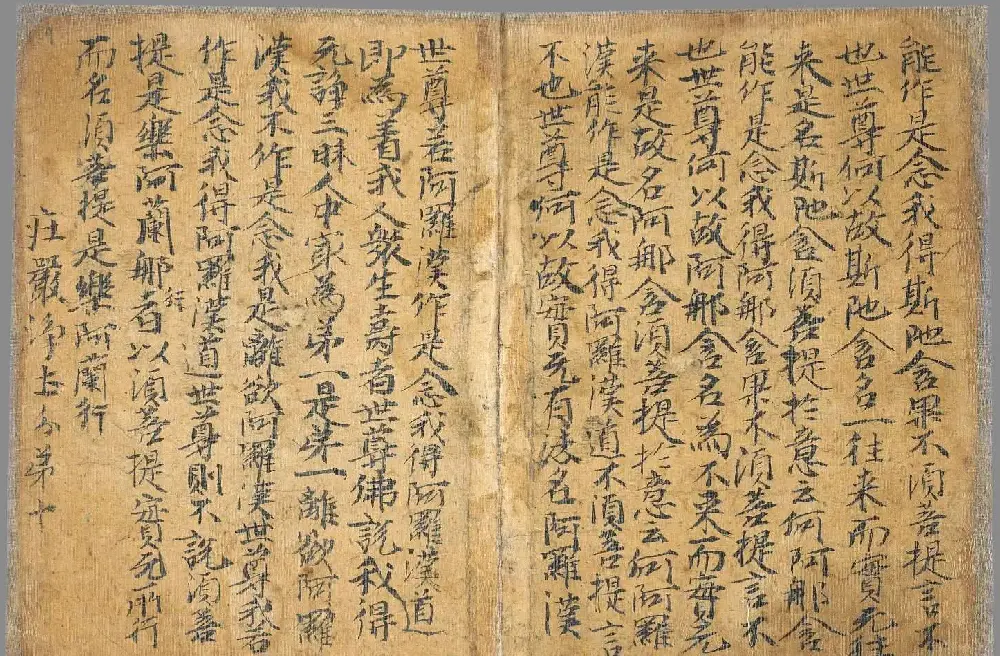 能作是念我得斯陁含果不須菩提言不
也世尊何以故斯陁含名一往来而實无往
来是名斯陁含須菩提於意云何阿那含
能作是念我得阿那含果不須菩提言不
也世尊何以故阿那含名為不来而實无
来是故名阿那含須菩提於意云何阿羅
漢能作是念我得阿羅漢道不須菩提言
不也世尊何以故實无有法名阿羅漢
世尊若阿羅漢作是念我得阿羅漢道
即為著我人衆生壽者世尊佛說我得
无諍三昧人中冣為第一是第一離欲阿羅
漢我不作是念我是離欲阿羅漢世尊我若
作是念我得阿羅漢道世尊則不說須菩
提是樂阿蘭那行者以須菩提實无所行
而名須菩提是樂阿蘭行
莊嚴淨土分第十